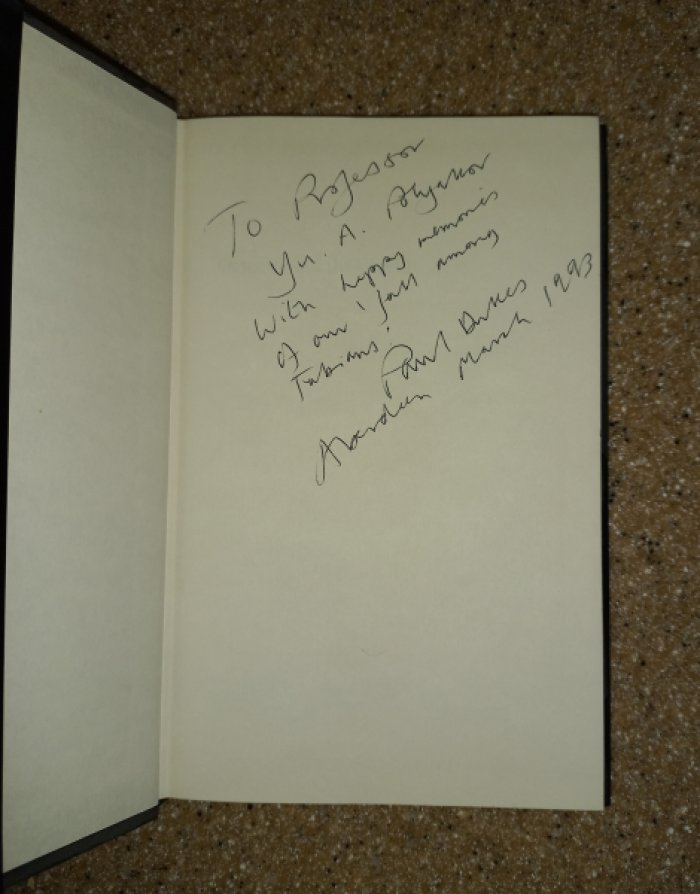 To Professor
Yu. A. Polyakov
With happy memories
of our 'fall among
Fabians'.
Paul Dukes
Aberdeen March 1993